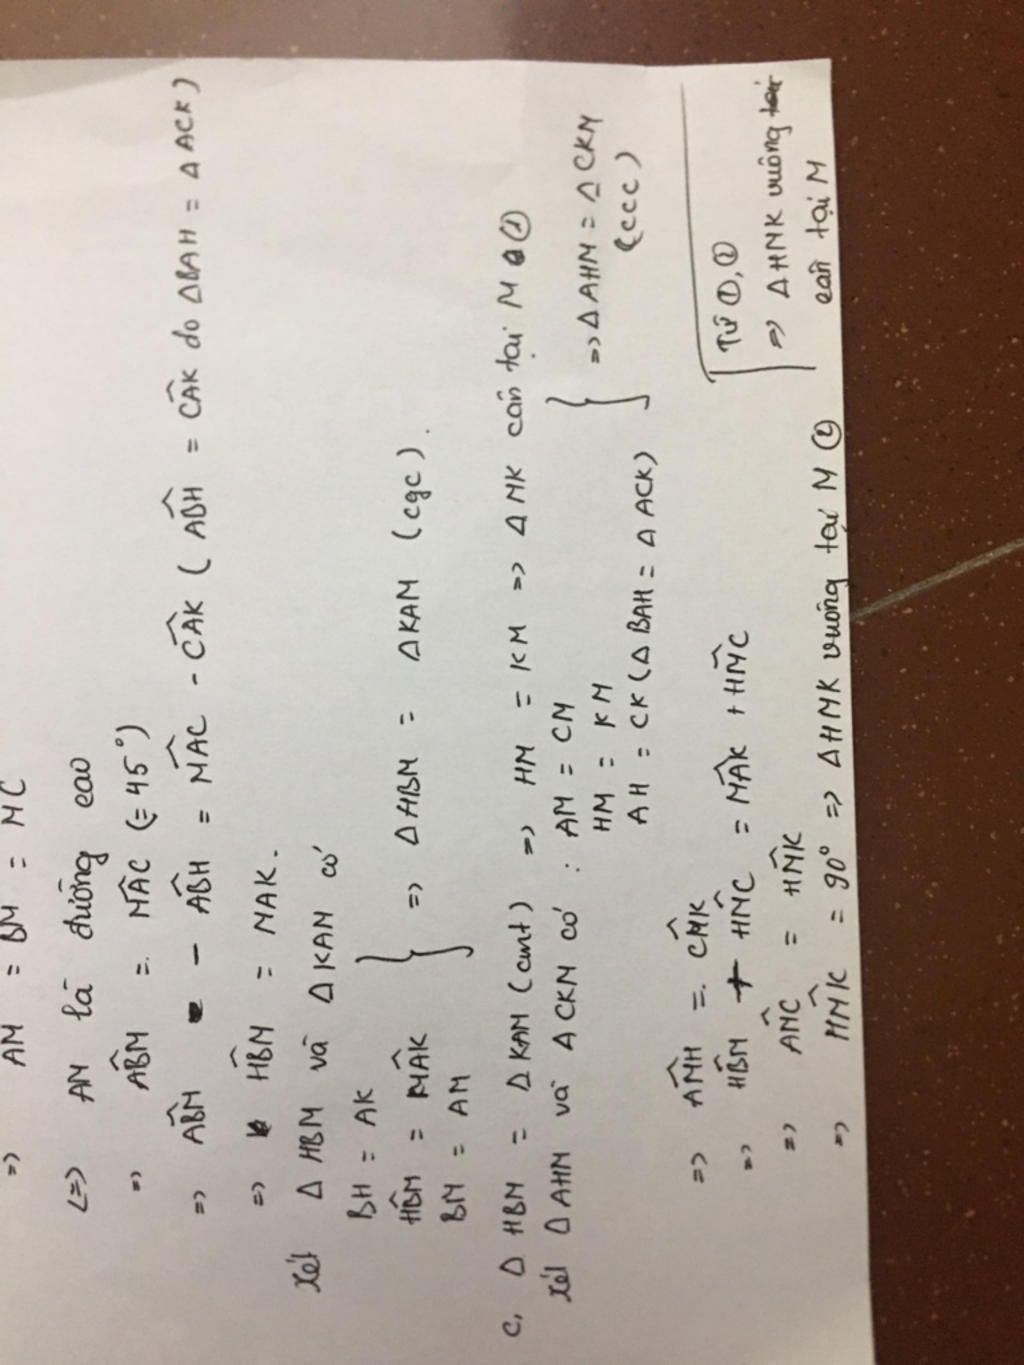 => AM = BM = MC
<=> AM là đường cao
=> ABM̂ = MÂC (= 45°)
=> AB̂M - AB̂H = MÂC - CÂK ( AB̂H = CÂK do ΔBAH = Δ ACK)
=> HB̂M = MAK.
Xét Δ HBM và Δ KAM có
BH = AK
HB̂M = MÂK } => Δ HBM = Δ KAM (cgc).
BM = AM
c, Δ HBM = Δ KAM (cmt) => HM = KM => Δ MK cân tại M ①
Xét Δ AHM và Δ CKM có : AM = CM
HM = KM } => Δ AHM = Δ CKM
AH = CK (Δ BAH = Δ ACK) (ccc)
=> AM̂H = CM̂K
=> HB̂M + HM̂C = MÂK + HM̂C
=> AM̂C = HM̂K
=> HM̂K = 90° => Δ HMK vuông tại M ②
Từ ①, ②
=> Δ HMK vuông
cân tại M